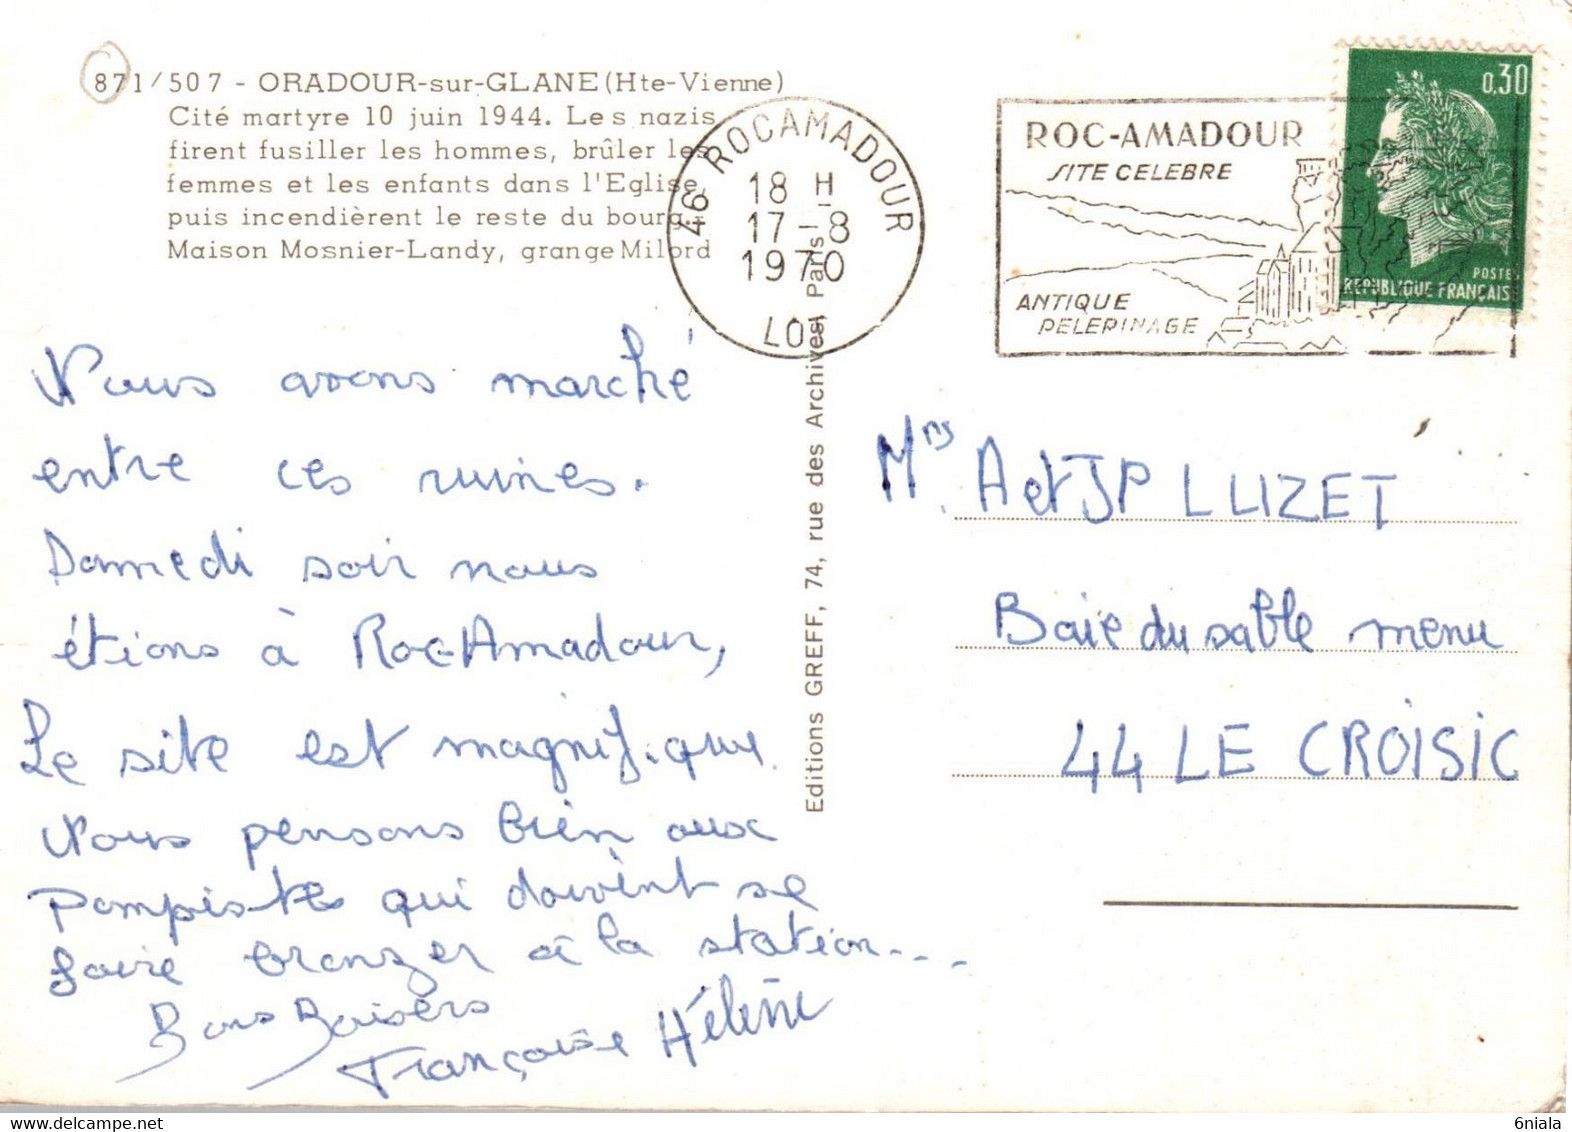 871/507 - ORADOUR-sur-GLANE (Hte-Vienne)
Cité martyre 10 juin 1944. Les nazis
firent fusiller les hommes, brûler les
femmes et les enfants dans l'Eglise,
puis incendièrent le reste du bourg -
Maison Mosnier-Landy, grange Milord
46 ROCAMADOUR
18 H
17-8
1970
LOT
ROC-AMADOUR
SITE CELEBRE
ANTIQUE
PELERINAGE
0,30
POSTES
REPUBLIQUE FRANÇAISE
Nous avons marché
entre ces ruines.
Samedi soir nous
étions à Roc-Amadour,
Le site est magnifique.
Nous pensons bien aux
pompistes qui doivent se
faire bronzer à la station...
Bons Baisers
Françoise Hélène
Editions GREFF, 74, rue des Archives, Paris
Mrs A et JP LUIZET
Baie du sable menu
44 LE CROISIC
6niala